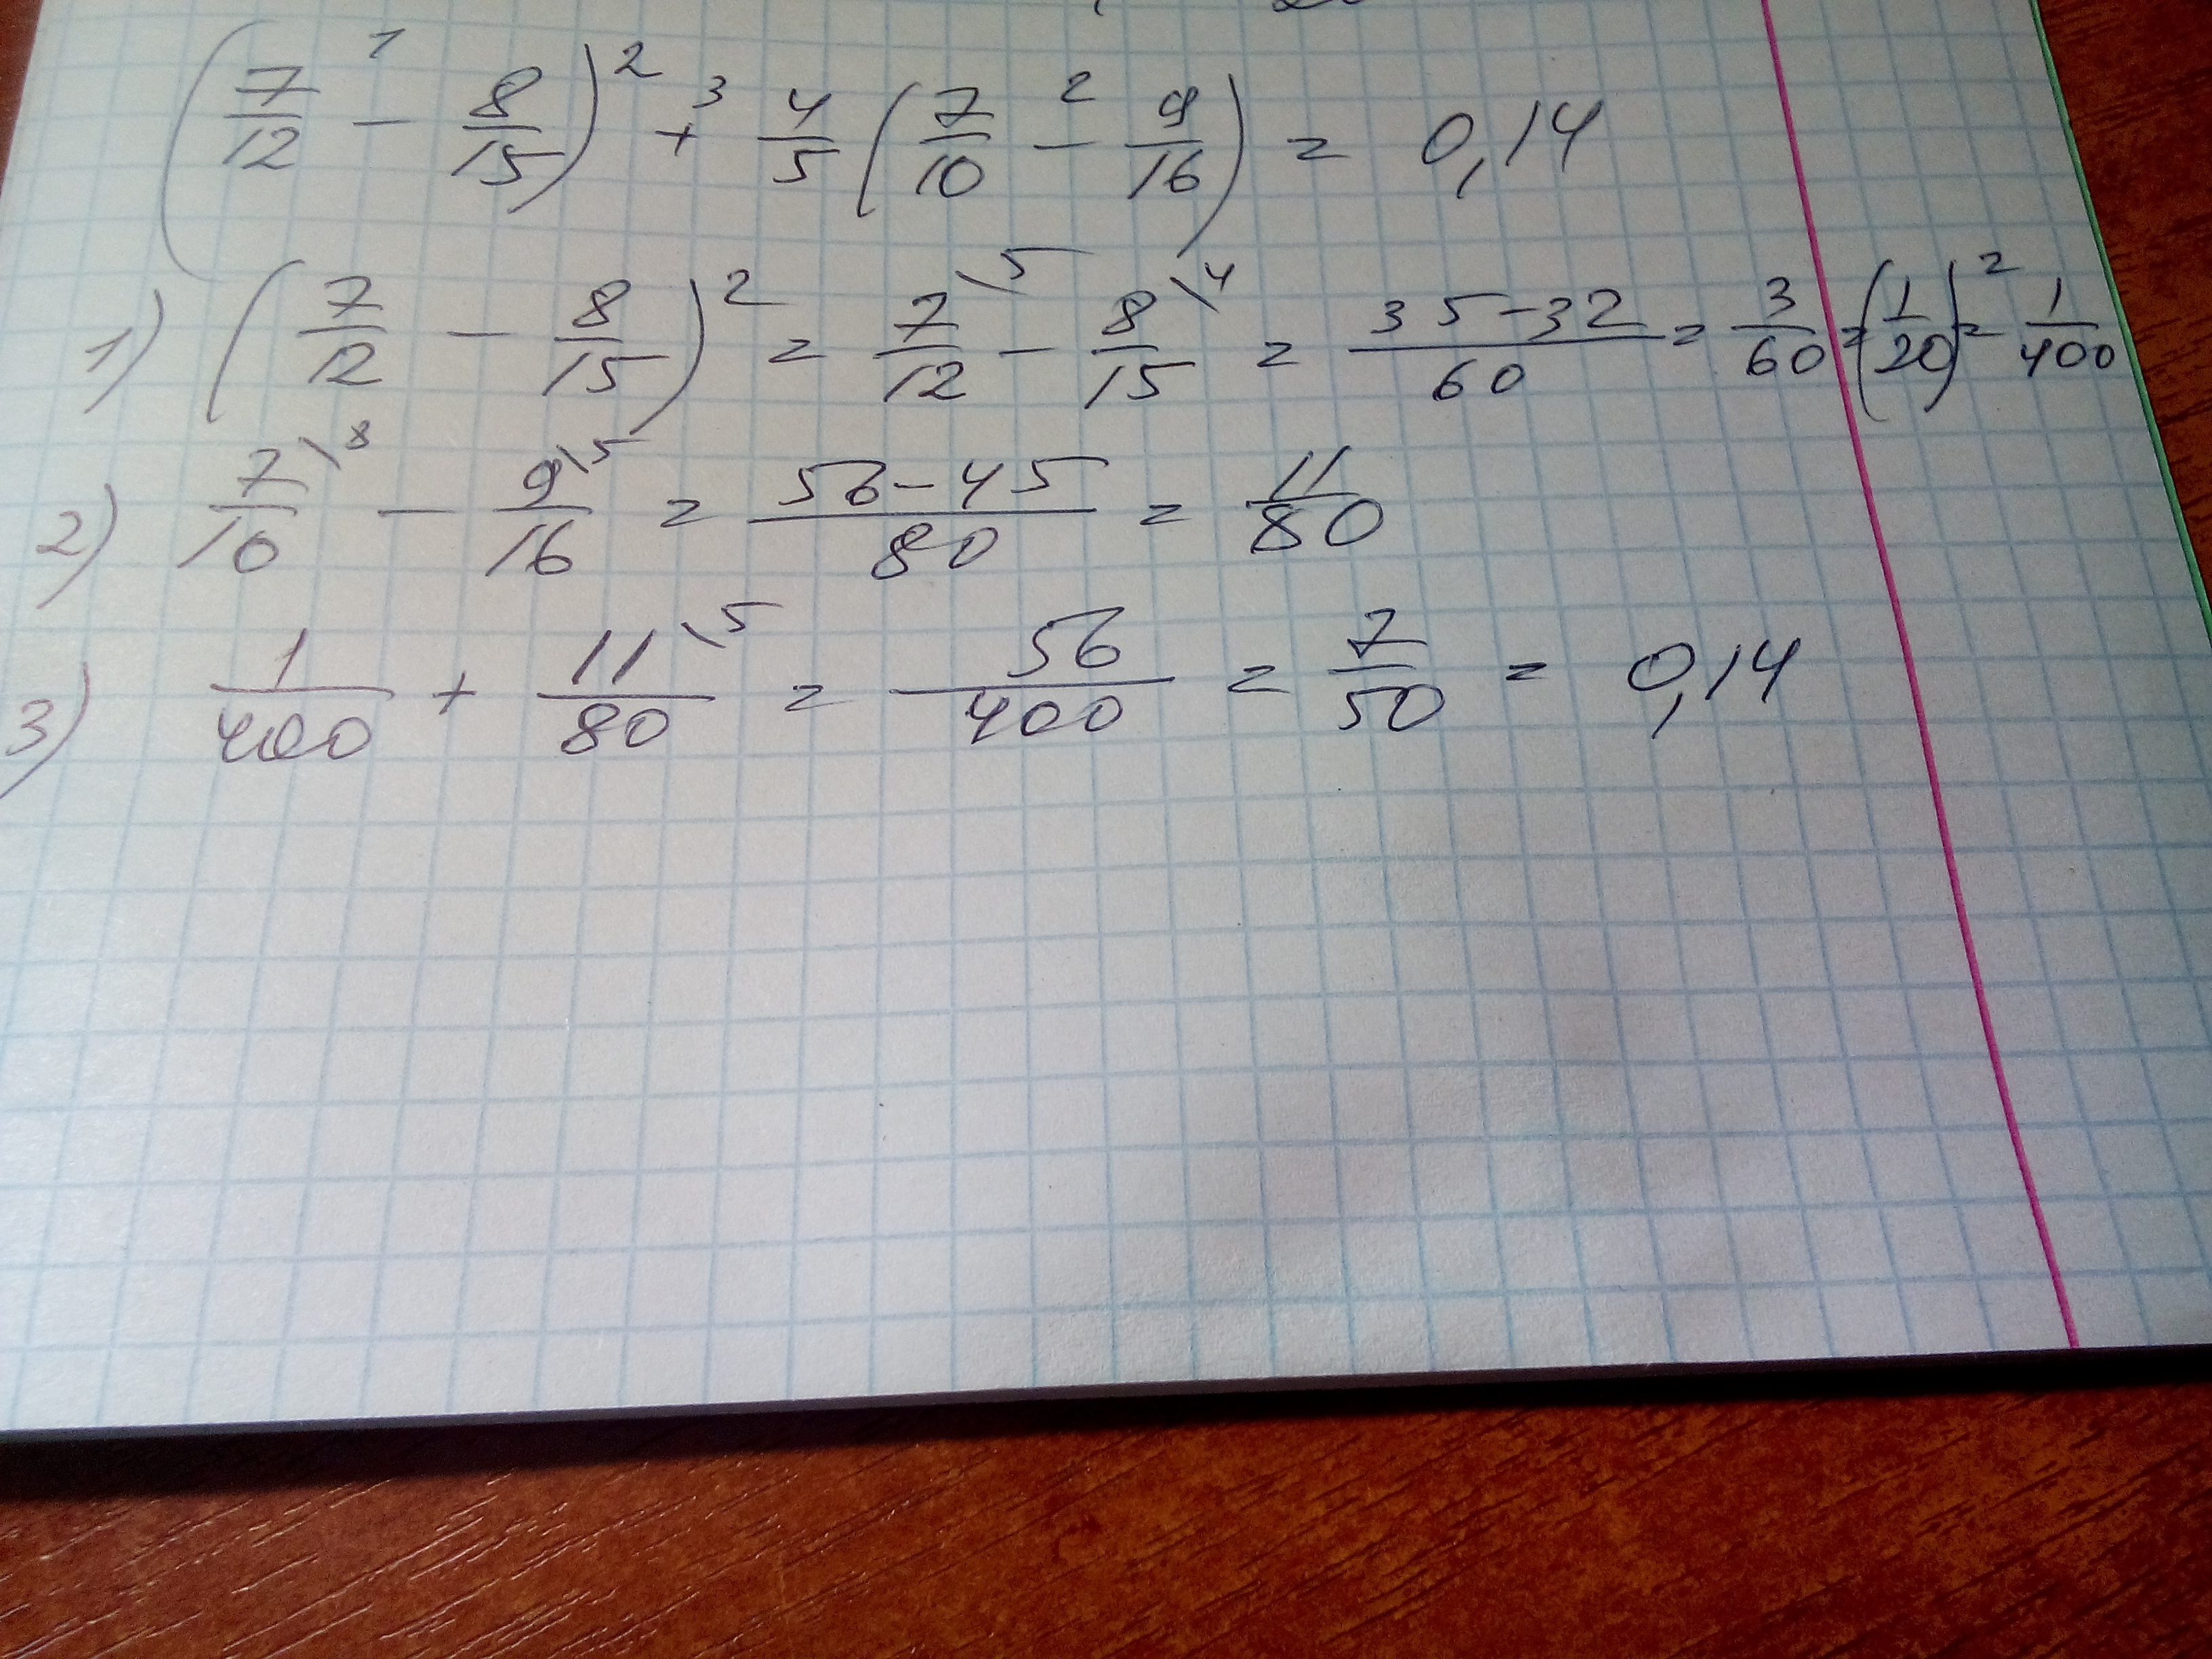 (7/12 ¹- 8/15)² +³ 4/5 (7/10 ²- 9/16) = 0,14
1) (7/12 - 8/15)² = 7/12\5 - 8/15\4 = 35-32/60 = 3/60 = (1/20)² = 1/400
2) 7/10\8 - 9/16\5 = 56-45/80 = 11/80
3) 1/400 + 11/80\5 = 56/400 = 7/50 = 0,14